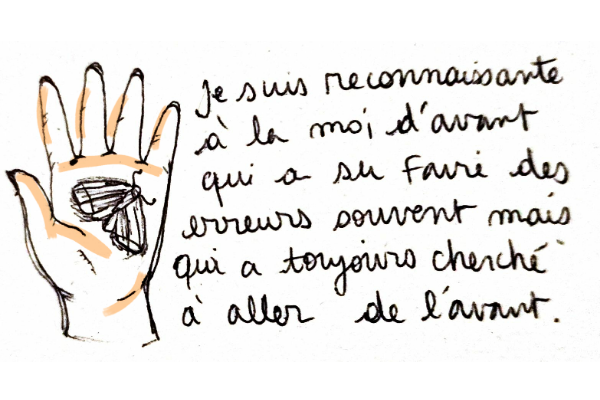 Je suis reconnaissante
à la moi d'avant
qui a su faire des
erreurs souvent mais
qui a toujours cherché
à aller de l'avant.